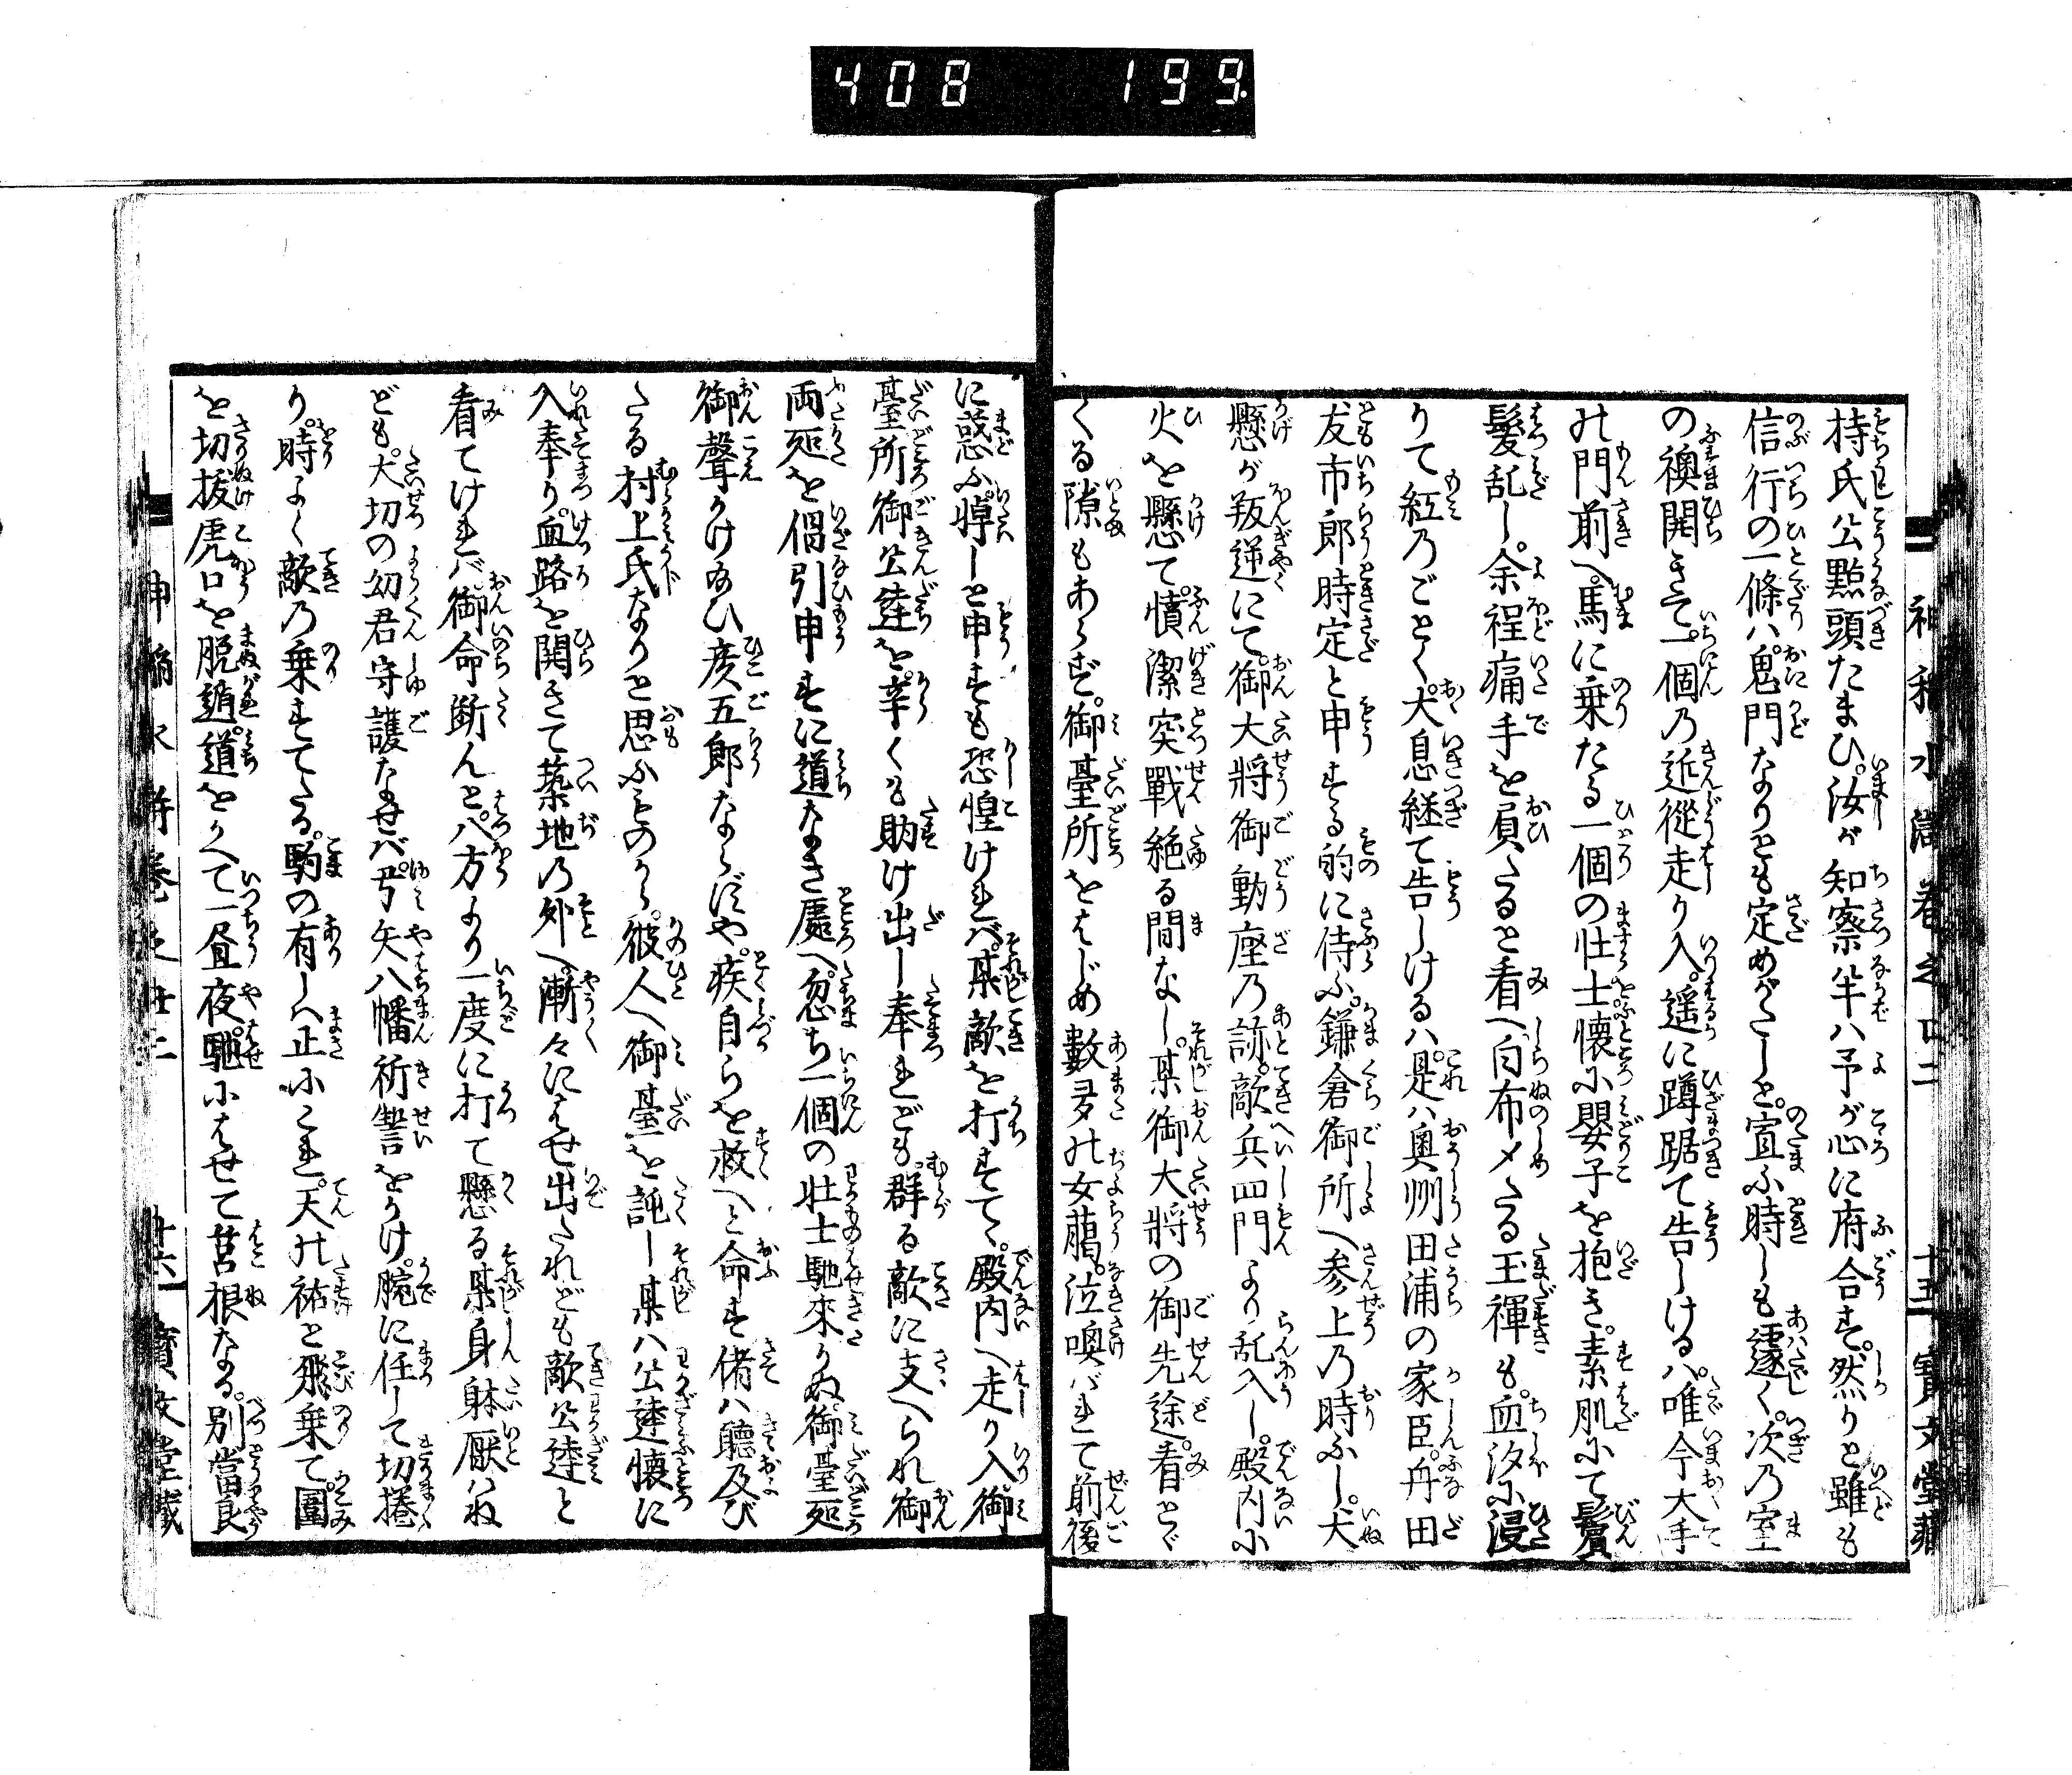 408 199
持氏公點頭たまひ。汝が知察半ハ予が心に府合す。然りと雖も
信行の一條ハ。鬼門なりとも定めがたしと。宣ふ時しも遽く。次乃室
の襖開きて。一個乃近從走り入。遥に蹲踞て告しけるハ。唯今大手
の門前へ馬に乗たる一個の壮士懐に嬰子を抱き。素肌にて鬢
髪乱し。余程痛手を負たると看へ白布〆たる玉襷も。血汐に浸
りて紅乃ごとく。大息継て告しけるハ。是ハ奥州田浦の家臣。舟田
友市郎時定と申する的に侍ふ。鎌倉御所へ参上乃時ふし。犬
懸が叛逆にて。御大將御動座乃跡。敵兵四門より乱入し。殿内に
火を懸て。憤潔突戰絶る間なし。某御大將の御先途。看とゞ
くる隙もあらず。御臺所をはじめ數多の女﨟。泣喚バれて前後
に惑ふ。悼しと申すも恐惶けれバ。某敵を打すて。殿内へ走り入。御
臺所御公達を。辛くも助け出し奉れども。群る敵に支へられ。御
両処を倡引申すに道なき處へ。忽ち一個の壮士馳來りぬ。御臺処
御聲かけ給ひ彦五郎ならずや。疾自らを救へと命す。偖ハ聽及び
たる村上氏なりと思ふものから。彼人へ御臺を託し某ハ公達懐に
入奉り。血路を開きて築地乃外へ。漸々にはせ出たれども敵公達と
看てけれバ。御命断んと。八方より一度に打て懸る。某身躰厭はね
ども。大切の幼君守護なせバ。弓矢八幡祈誓をかけ。腕に任して切捲
り。時よく敵乃乗すてたる。駒の有しハ正にこれ。天の祐と飛乗て。圍
を切抜虎口を脱遁。道をかへて一昼夜。馳にはせて筥根なる。別當良
神稻水滸卷之廿二 十五 寶文堂藏
神稻水滸卷之廿二 十六 寶文堂藏